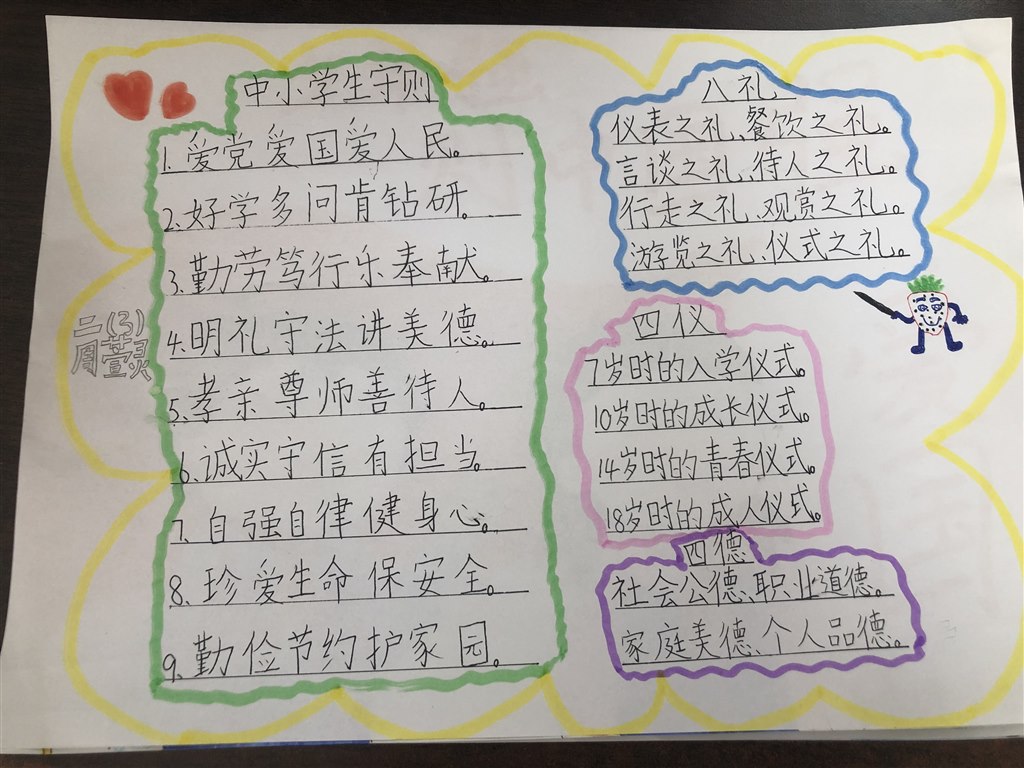 中小学生守则
1、爱党爱国爱人民。
2、好学多问肯钻研。
3、勤劳笃行乐奉献。
4、明礼守法讲美德。
5、孝亲尊师善待人。
6、诚实守信有担当。
7、自强自律健身心。
8、珍爱生命保安全。
9、勤俭节约护家园。
二(3)
周萱灵
八礼
仪表之礼、餐饮之礼。
言谈之礼、待人之礼。
行走之礼、观赏之礼。
游览之礼、仪式之礼。
四仪
7岁时的入学仪式。
10岁时的成长仪式。
14岁时的青春仪式。
18岁时的成人仪式。
四德
社会公德、职业道德。
家庭美德、个人品德。